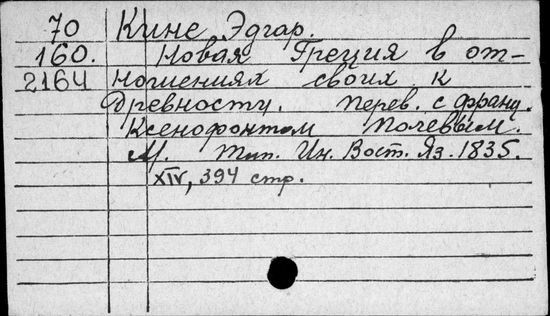 70 Кине Эдгар.
160. Новая Греция в от-
2164 ношениях своих к
древности. Перев. с франц.
Ксенофонтом Полевым.
М. Тип. Ин. Вост. Яз. 1835.
XIV, 394 стр.